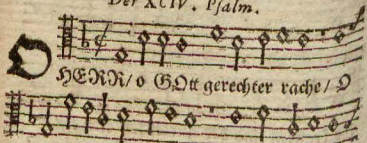 Der XCIV. Psalm.
O HERR/ o GOtt gerechter rache/ O